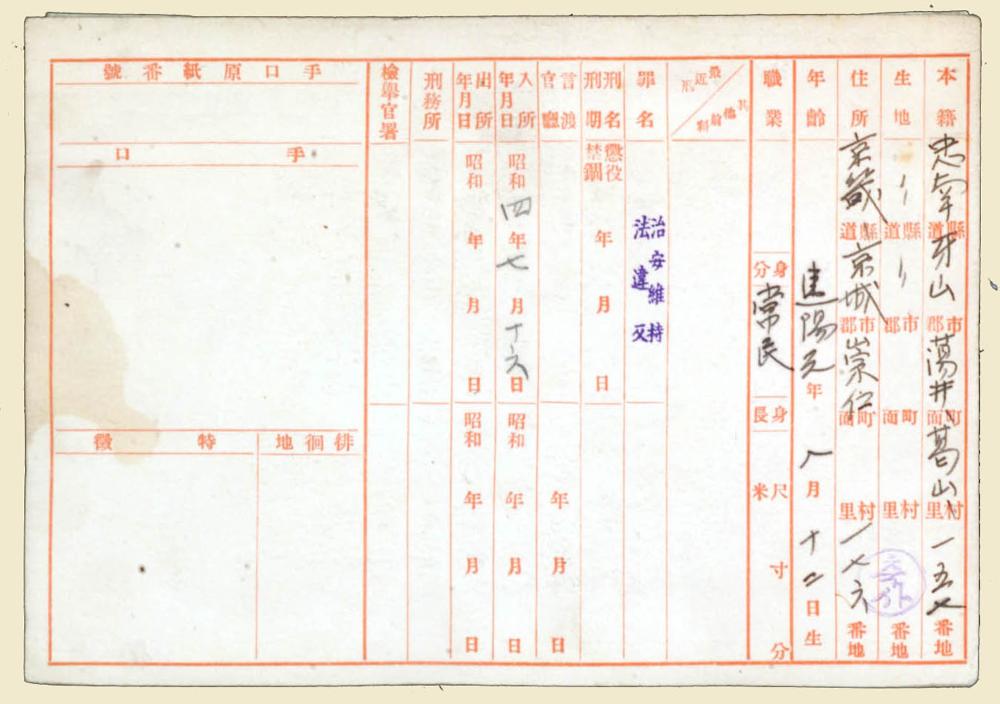 本籍 忠南道縣牙山郡市湯井面町葛山里村一五七番地
生地 〃道縣〃郡市面町里村番地
住所 京畿道縣京城郡市崇仁面町里村一七六番地
年齡 建陽元年八月十二日生
職業 身分 常民 身長 尺米寸分
最近刑 其他前科
罪名 治安維持法違反
刑名刑期 懲役禁錮 年月日
言渡官廳 年月日
入所年月日 昭和四年七月十六日 昭和年月日
出所年月日 昭和年月日 昭和年月日
刑務所
檢擧官署
手口原紙番號
手口
徘徊地
特徵